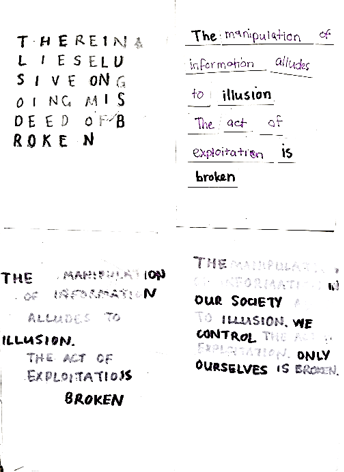 THEREIN &
LIES ELU
SIVE ONG
OING MIS
DEED OF B
ROKEN
The manipulation of
information alludes
to illusion
The act of
exploitation is
broken
THE MANIPULATION
OF INFORMATION
ALLUDES TO
ILLUSION.
THE ACT OF
EXPLOITATIO IS
BROKEN
THE MANIPULAT
INFORMATI IN
OUR SOCIETY
TO ILLUSION. WE
CONTROL THE A
EXPLOITATION. ONLY
OURSELVES IS BROKEN.